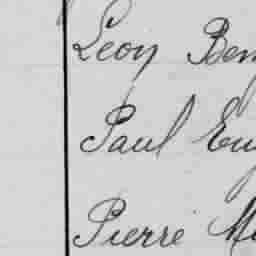 Léon Ben
Paul Eug
Pierre M